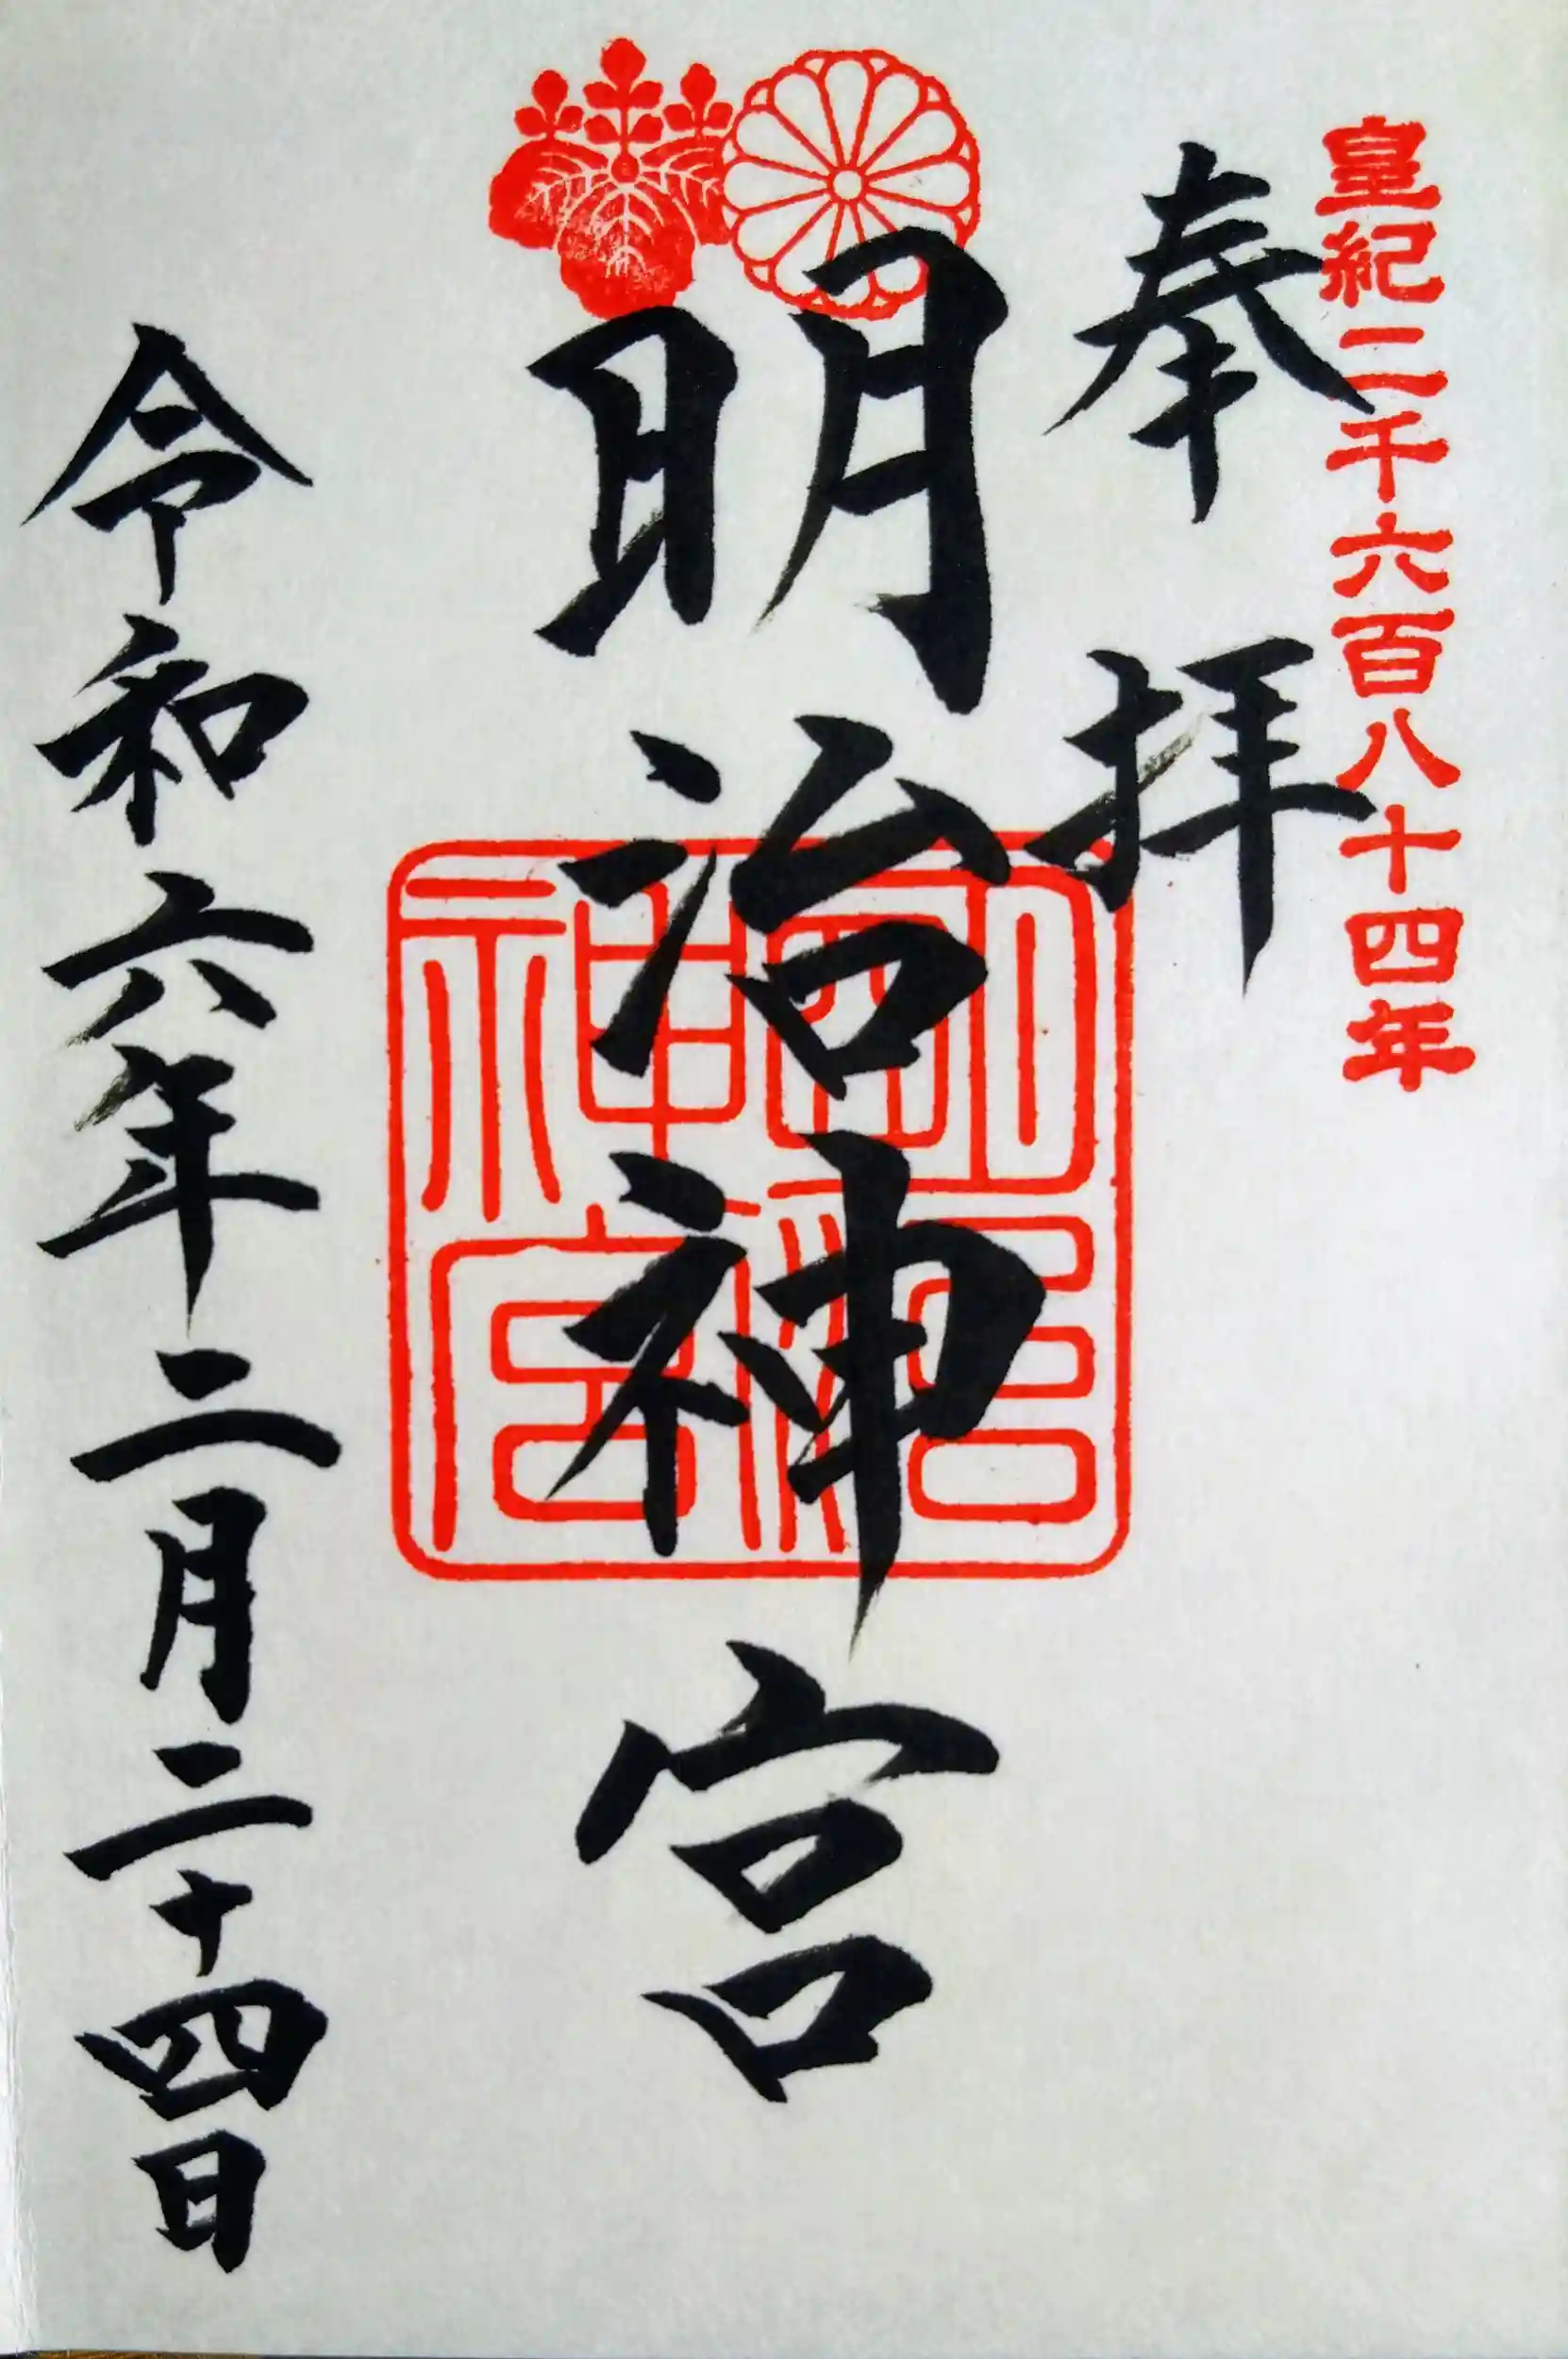 皇紀二千六百八十四年
奉拝
明治神宮
明治神宮
令和六年二月二十四日